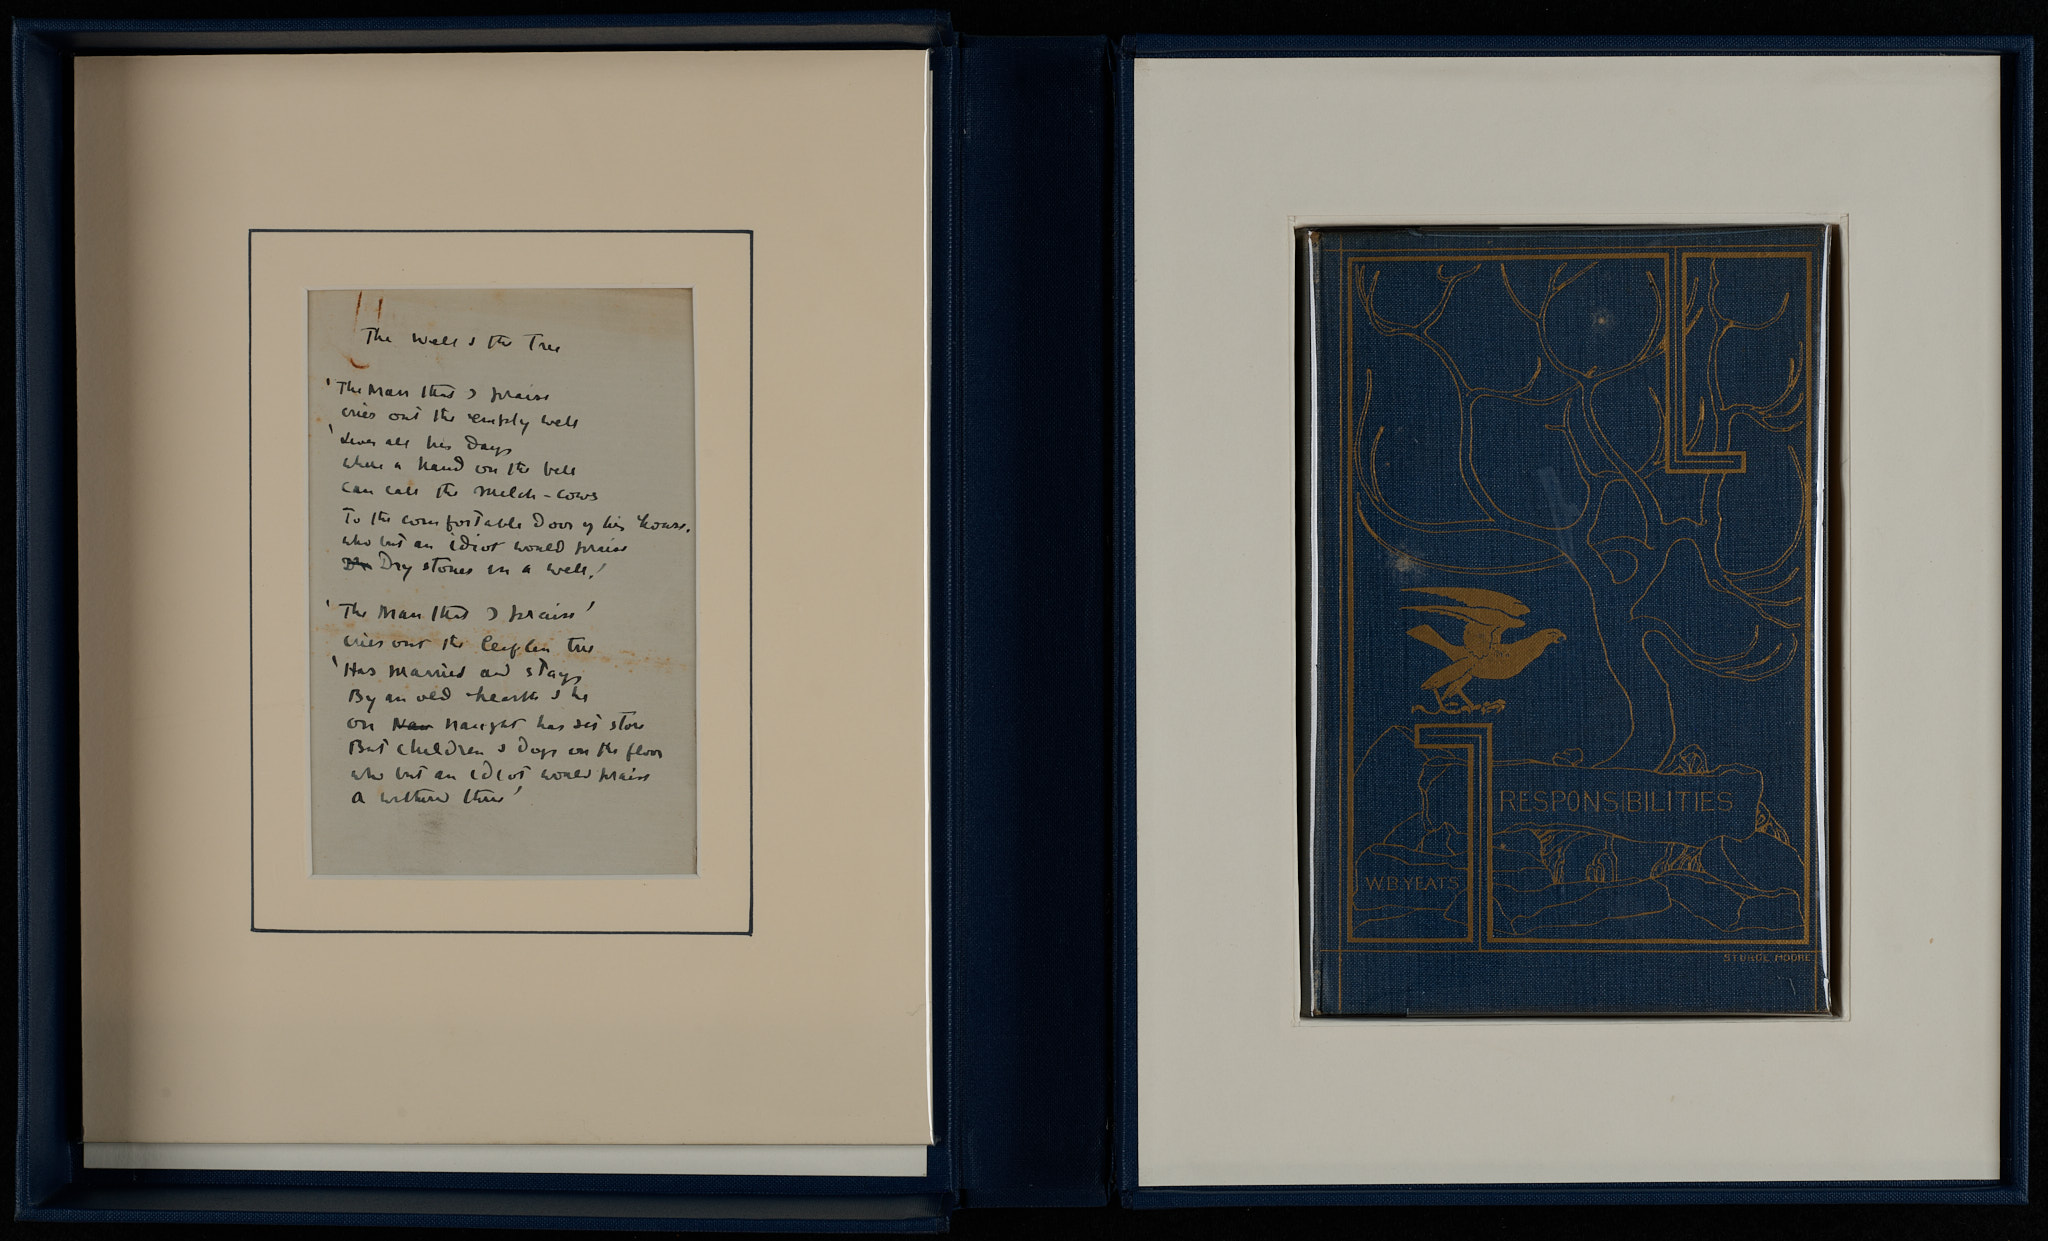 The Well & the Tree
'The Man that I praise
cries out the empty well
'Lives all his days
where a hand on the bell
can call the milch-cows
To the comfortable door of his house.
who but an idiot would praise
Dry stones in a well.'
'The Man that I praise'
cries out the leafless tree
'Has married and stays
By an old hearth & he
on naught has set store
But children & dogs on the floor
who but an idiot would praise
a withered tree'
RESPONSIBILITIES
W.B.YEATS
STURGE MOORE